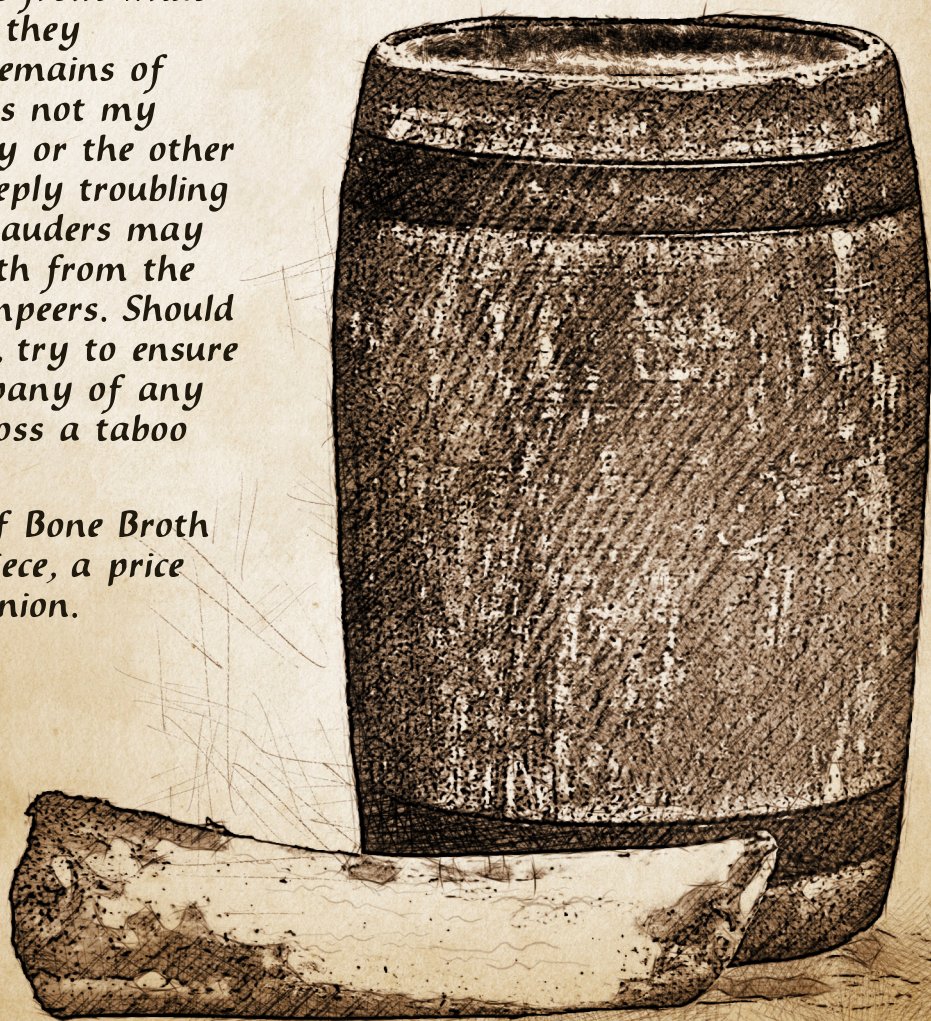 they
emains of
s not my
y or the other
eply troubling
auders may
th from the
npeers. Should
, try to ensure
pany of any
oss a taboo
f Bone Broth
iece, a price
nion.